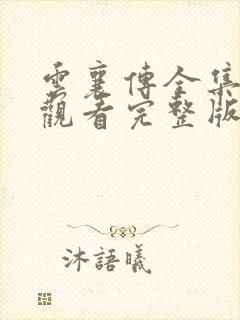 雲襄傳全集
觀看完整版
沐語曦